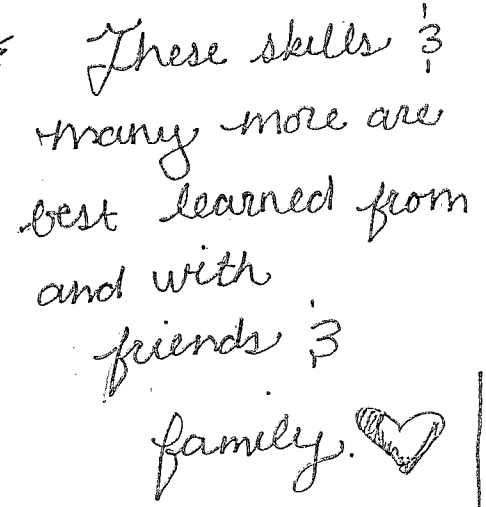 These skills &
many more are
best learned from
and with
friends &
family.